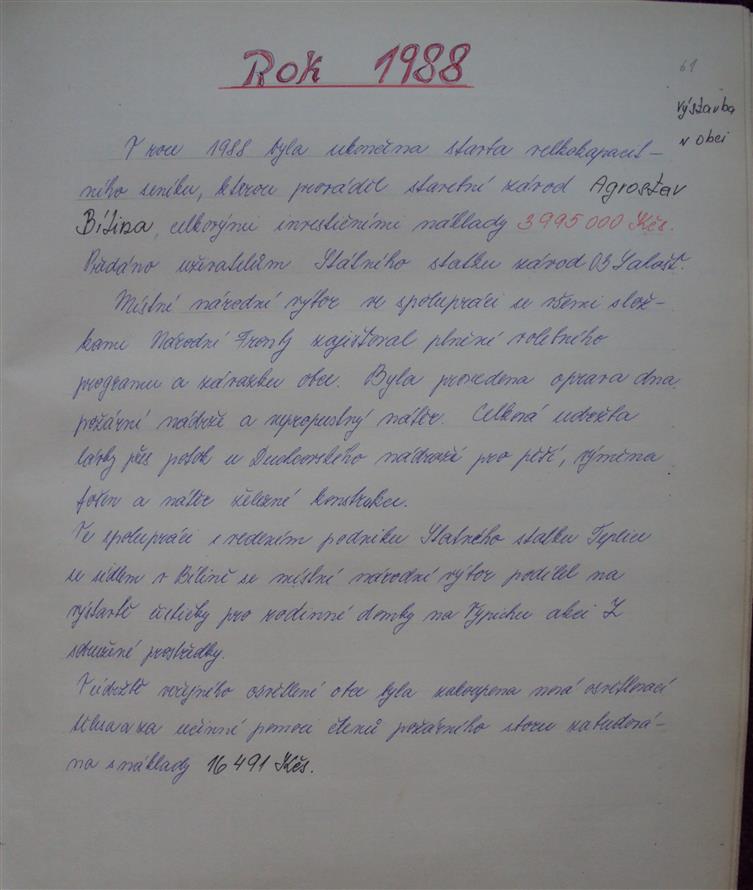 Rok 1988
61
výstavba
v obci
V roce 1988 byla ukončena stavba velkokapacit-
ního seníku, kterou prováděl stavební závod Agrostav
Bílina, celkovými investičními náklady 3 995 000 Kčs.
Předáno uživatelům Státního statku závod 03 Lahošť.
Místní národní výbor ve spolupráci se všemi slož-
kami Národní Fronty zajišťoval plnění volebního
programu a závazku obce. Byla provedena oprava dna
požární nádrže a nepropustný nátěr. Celková údržba
lávky přes potok u Duchcovského nádraží pro pěší, výměna
fošen a nátěr železné konstrukce.
Ve spolupráci s vedením podniku Státního statku Teplice
se sídlem v Bílině se místní národní výbor podílel na
výstavbě čističky pro rodinné domky na Vypichu akci Z
sdružené prostředky.
V údržbě veřejného osvětlení obce byla zakoupena nová osvětlovací
tělesa a za účinné pomoci členů požárního sboru zabudová-
na s náklady 16 491 Kčs.